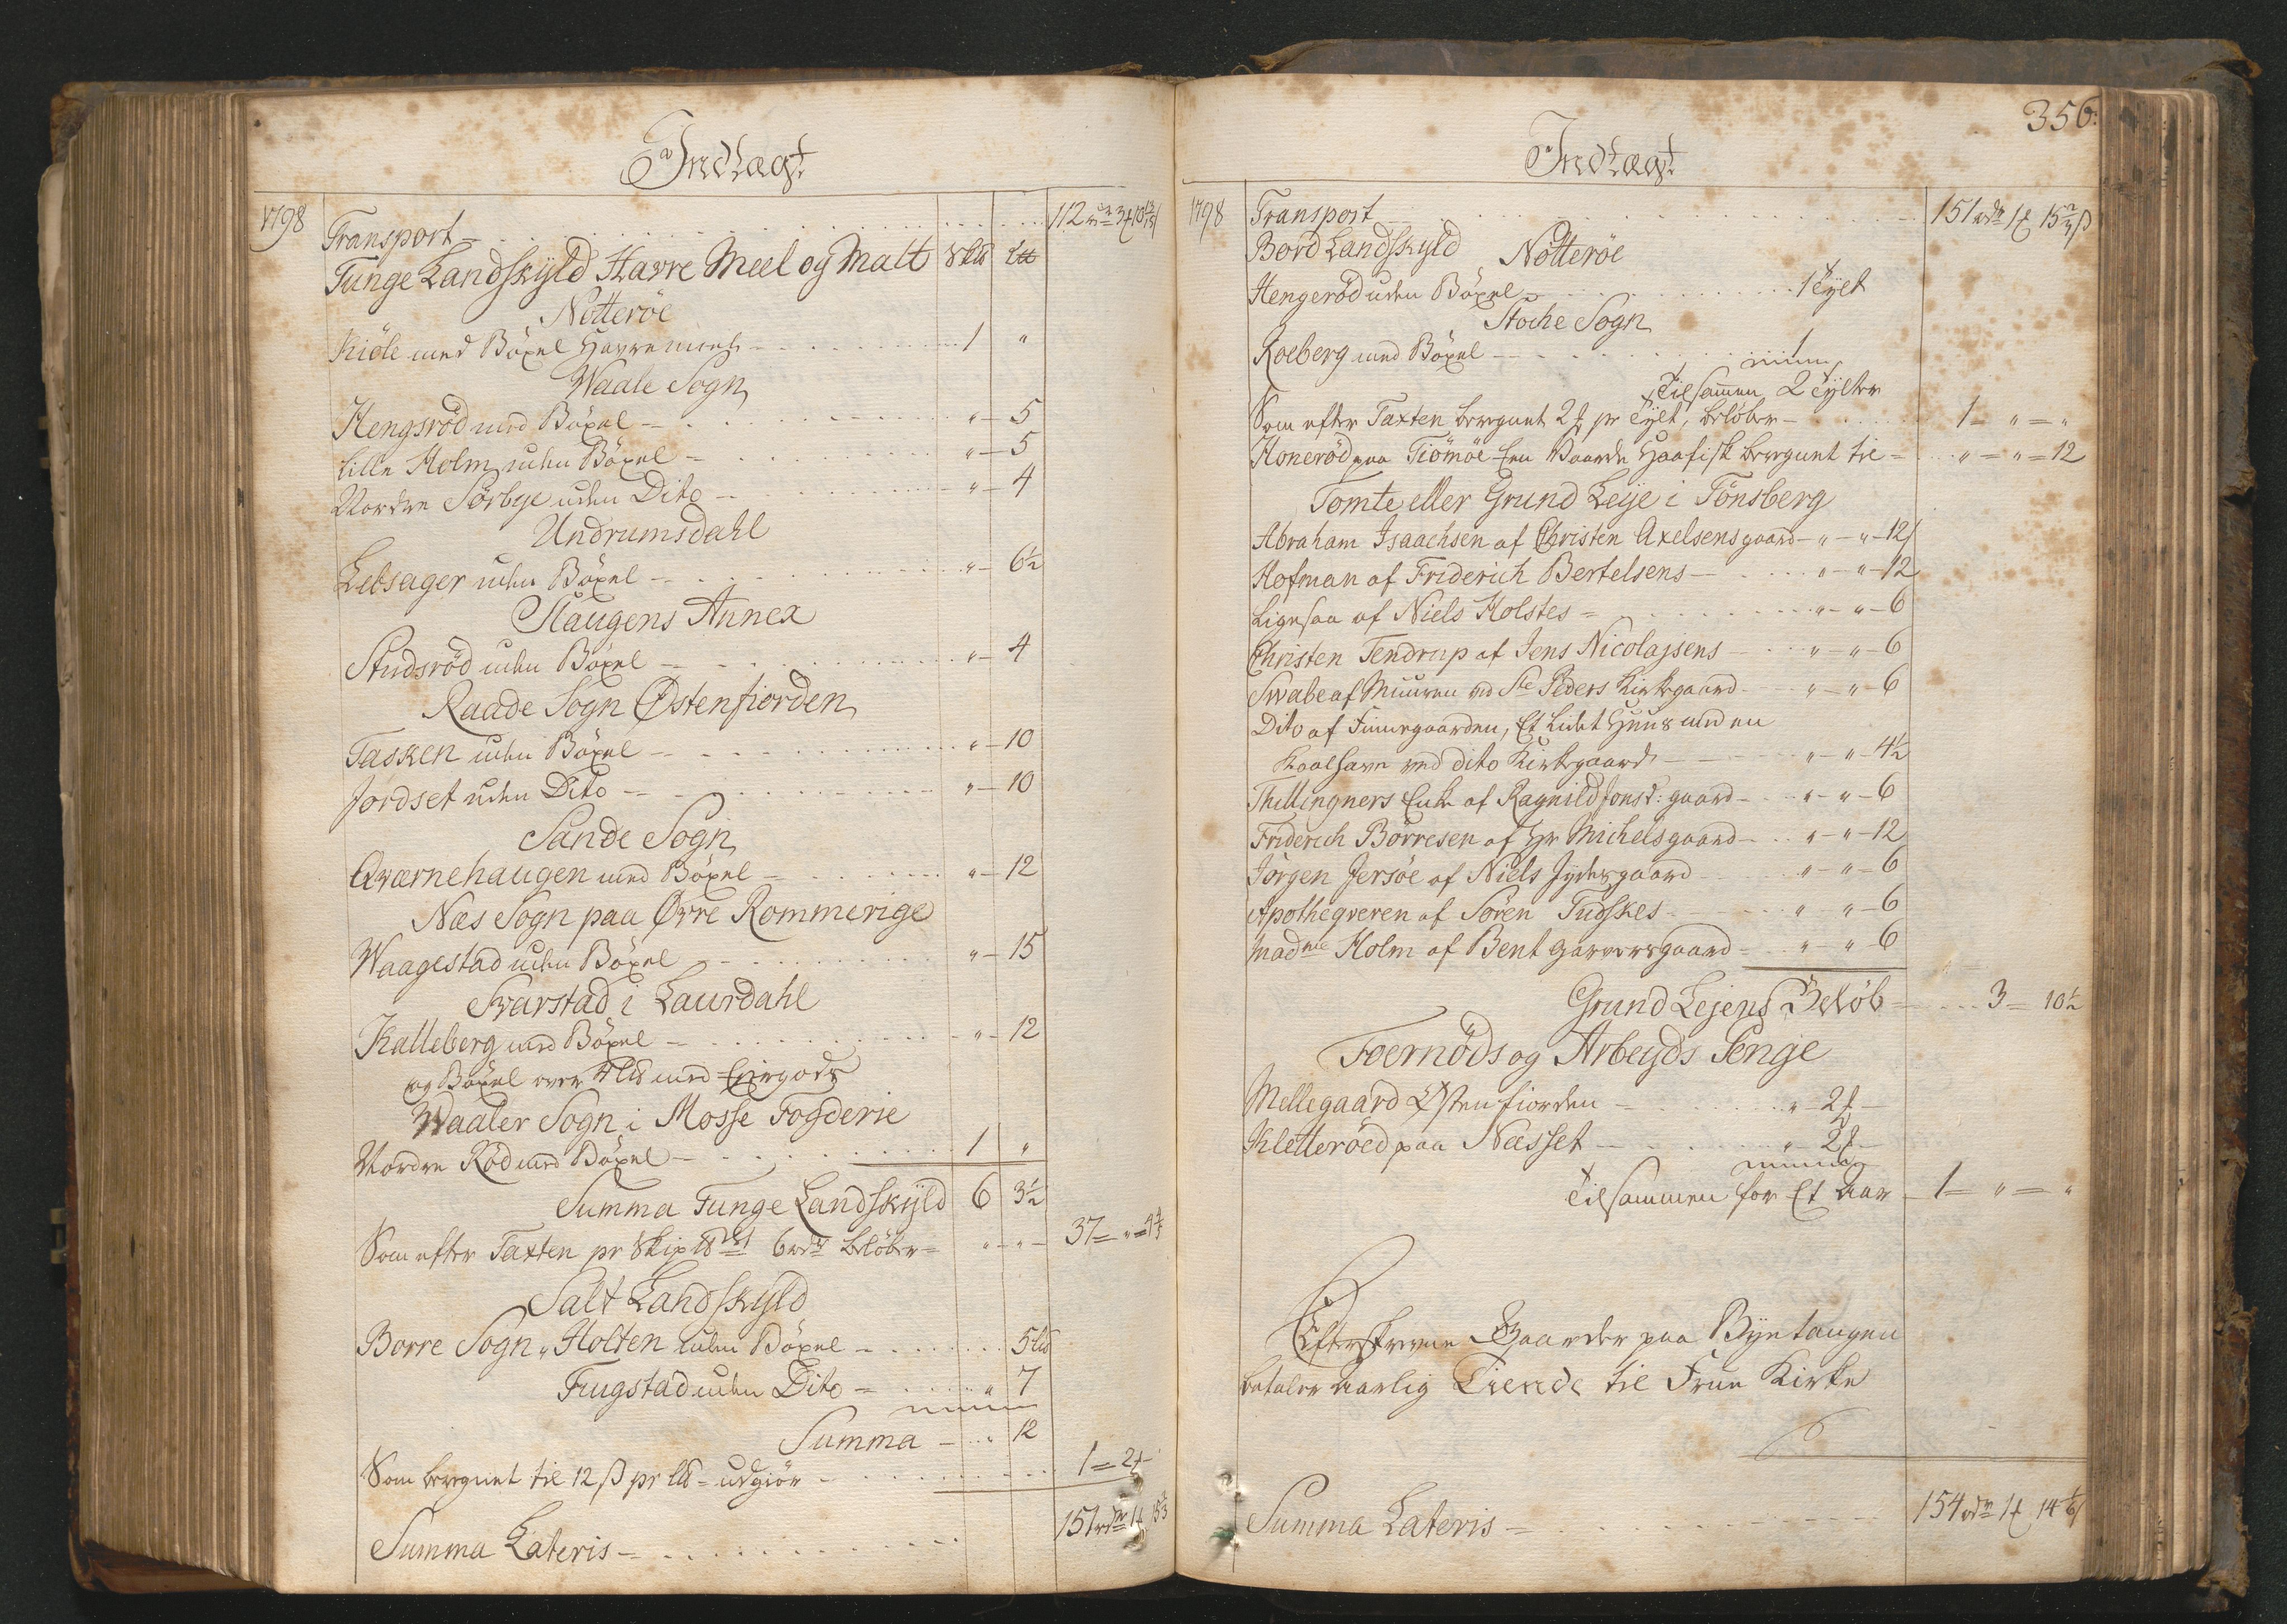 Indtægt
1798 Transport 112 rdr 3 ƶ 10 13/15 ß
Tunge Landskyld Havre Meel og Malt Sk℔ L℔
Nøtterøe
Kiøle med Böxel Havremeel 1 "
Waale Sogn
Hengsröd med Böxel " 5
Lille Holm uden Böxel " 5
Nordre Sörbye uden Dito " 4
Undrumsdahl
Lebsager uden Böxel " 6½
Slaugens Annex
Studsröd uden Böxel " 4
Raade Sogn Østenfiorden
Tasken uden Böxel " 10
Jordset uden Dito " 10
Sande Sogn
Qværnehaugen med Böxel " 12
Næs Sogn paa Øvre Rommerige
Waagestad uden Böxel " 15
Svarstad i Laurdahl
Kalleberg med Böxel " 12
og Böxel over med
Waaler Sogn i Mosse Fogderie
Nordre Röd med Böxel 1 "
Summa Tunge Landskyld 6 3½
Som efter Taxten pr Skip℔ 6 rdr belöber 37 " 4⅘
Salt Landskyld
Borre Sogn, Holten uden Böxel 5 L℔
Fuugstad uden Dito " 7
Summa " 12
Som beregnet til 12 ß pr L℔ udgiör 1 2 ƶ
Summa Lateris 151 rdr 1 ƶ 15⅔
356.
Indtægt
1798 Transport 151 rdr 1 ƶ 15⅔ ß
Bord Landskyld Nøtterøe
Hengeröd uden Böxel 1 Tylt
Stoche Sogn
Roeberg med Böxel 1
Tilsammen 2 Tylter
Som efter Taxten beregnet 2 ƶ pr Tylt, belöber 1 " "
Honeröd paa Tiömöe Een Vaarde Haafisk beregnet til " " 12
Tomte eller Grund Leije i Tönsberg
Abraham Isaachsen af Christen Axelsens gaard " " 12 ß
Hofman af Friderich Bertelsens " " 12
Ligesaa af Niels Holstes " " 6
Christen Tendrup af Jens Nicolajsens " " 6
Svabe af Muuren ved Ste Peders Kirkegaard " " 6
Dito af Finnegaarden, Et Lidet Huus med en
Kaalhave ved dito Kirkegaard " " 4½
Thellingners Enke af Ragnild Jonsd: gaard " " 6
Friderich Börresen af Hr Michelsgaard " " 12
Jörgen Jersöe af Niels Jydesgaard " " 6
Apothegveren af Sören Tudskes " " 6
Madme Holm af Bent Garversgaard " " 6
Grund Lejens Belöb 3 10½
Foernöds og Arbeyds Penge
Mellegaard Østenfiorden " 2 ƶ
Kletteröed paa Næsset " 2 ƶ
Tilsammen for Et Aar 1 " "
Efterskrevne Gaarder paa Byetangen
betaler aarlig Tiende til Frue Kirke
Summa Lateris 154 rdr 1 ƶ 14⅙ ß